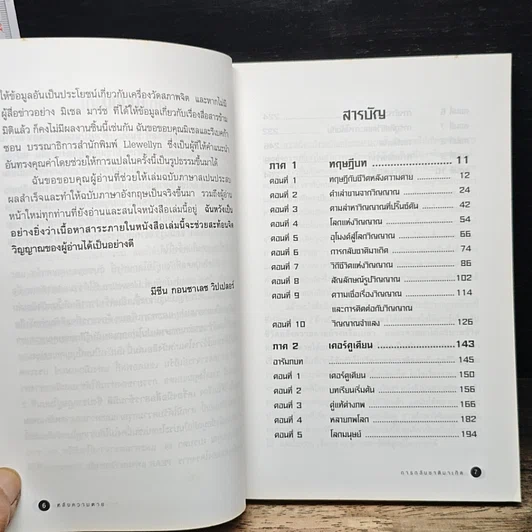 ให้ข้อมูลอันเป็นประโยชน์เกี่ยวกับเครื่องวัดสภาพจิต และหากไม่มี
ผู้สื่อข่าวอย่าง มิเชล มาร์ช ที่ได้ให้ข้อมูลเกี่ยวกับเรื่องสื่อสารข้าม
มิติแล้ว ก็คงไม่มีผลงานชิ้นนี้เช่นกัน ฉันขอขอบคุณมิเชลและริเบคก้า
ซอน บรรณาธิการสำนักพิมพ์ Llewellyn ซึ่งเป็นผู้ที่ให้คำแนะนำ
อันทรงคุณค่าโดยช่วยให้การแปลในครั้งนี้เป็นรูปธรรมขึ้นมาได้
ฉันขอขอบคุณผู้อ่านที่ช่วยให้เล่มภาษาสเปนประสบ
ผลสำเร็จและทำให้ฉบับภาษาอังกฤษเป็นจริงขึ้นมา รวมถึงผู้อ่าน
หน้าใหม่ทุกท่านที่ยังอ่านและสนใจหนังสือเล่มนี้อยู่ ฉันหวังเป็น
อย่างยิ่งว่าเนื้อหาสาระภายในหนังสือเล่มนี้จะช่วยสะท้อนจิต
วิญญาณของผู้อ่านได้เป็นอย่างดี
มิชีน กอนซาเลซ วิปเปลอร์
6 หลังความตาย
สารบัญ
ภาค 1 ทฤษฎีบท 11
ตอนที่ 1 ทฤษฎีกับชีวิตหลังความตาย 12
ตอนที่ 2 ตำเล่าขานจากวิญญาณ 24
ตอนที่ 3 ตามล่าหาวิญญาณที่เปรี้นซ์ตัน 42
ตอนที่ 4 โลกแห่งวิญญาณ 54
ตอนที่ 5 อุโมงค์สู่โลกวิญญาณ 66
ตอนที่ 6 การกลับชาติมาเกิด 74
ตอนที่ 7 วิถีชีวิตแห่งวิญญาณ 86
ตอนที่ 8 สัญลักษณ์รูปวิญญาณ 102
ตอนที่ 9 ความเชื่อเรื่องวิญญาณ 114
และการติดต่อกับวิญญาณ
ตอนที่ 10 วิญญาณจำแลง 126
ภาค 2 เคอร์คูเดียน 143
อารัมภบท 145
ตอนที่ 1 เคอร์คูเดียน 150
ตอนที่ 2 บทเรียนเริ่มต้น 156
ตอนที่ 3 คู่แท้ต่างภพ 166
ตอนที่ 4 หลายภพโลก 182
ตอนที่ 5 โลกมนุษย์ 194
การกลับชาติมาเกิด 7